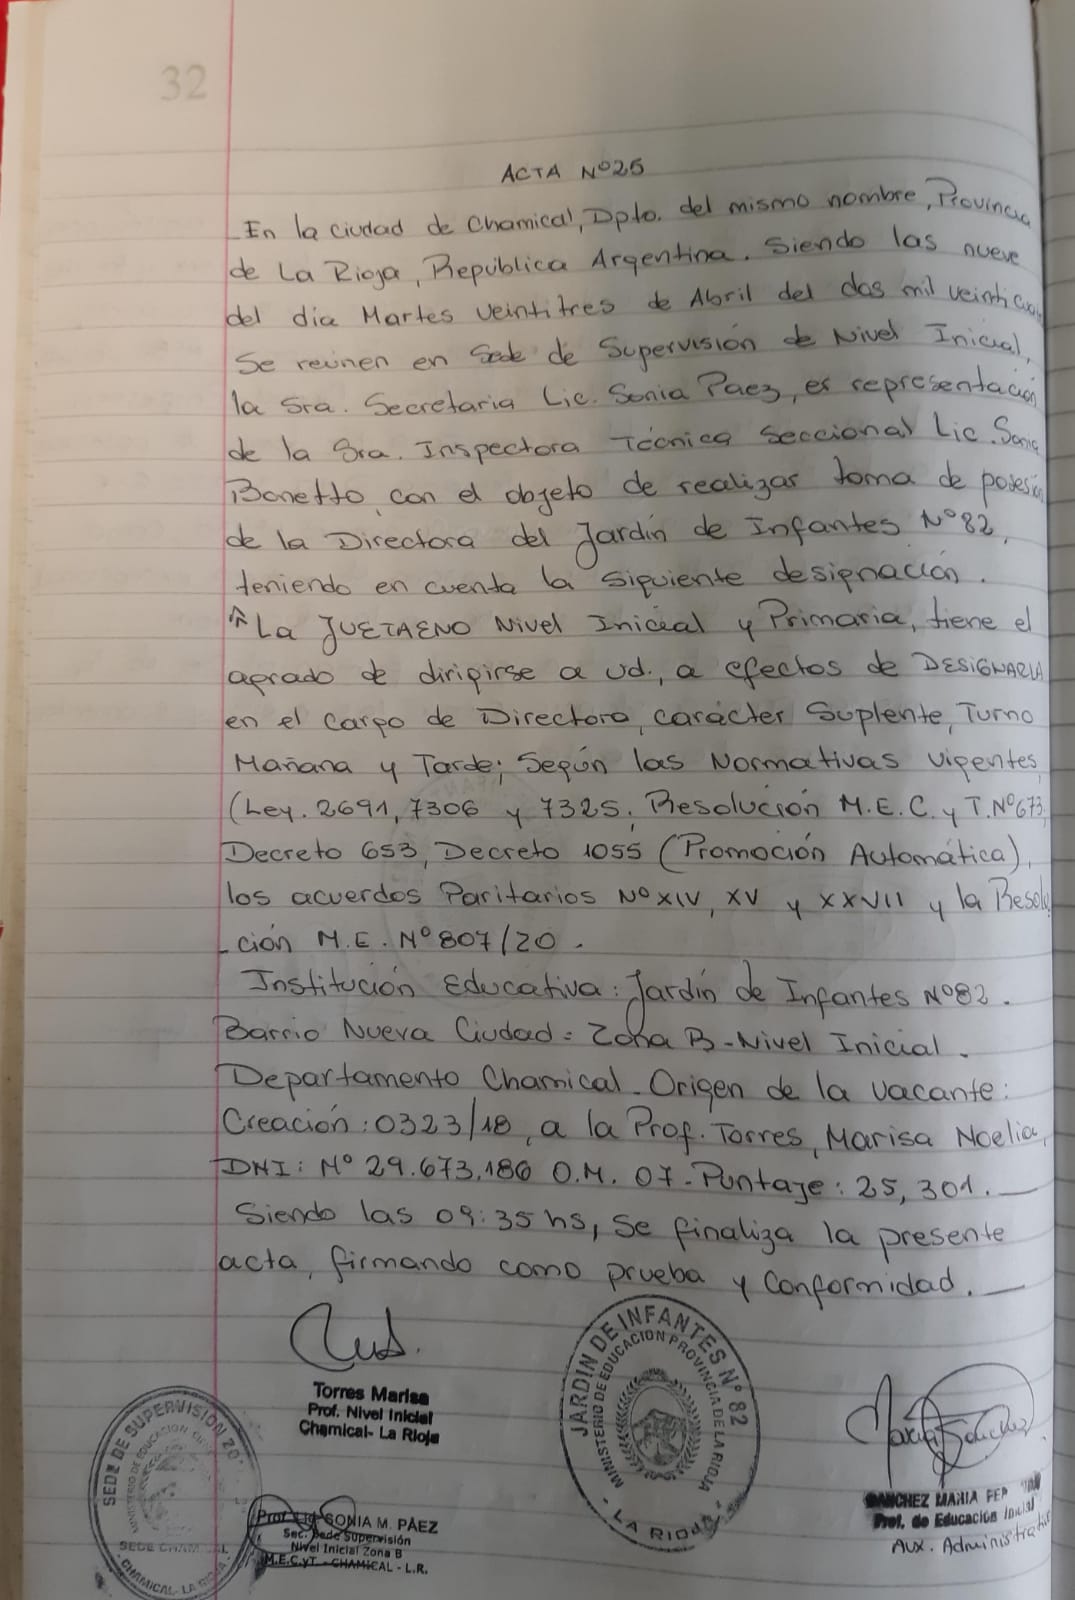 32
ACTA Nº25
En la ciudad de Chamical, Dpto. del mismo nombre, Provincia
de La Rioja, República Argentina. Siendo las nueve
del día Martes veintitres de Abril del dos mil veinticua
Se reúnen en Sede de Supervisión de Nivel Inicial,
la Sra. Secretaria Lic. Sonia Paez, es representación
de la Sra. Inspectora Técnica Seccional Lic. Sonia
Bonetto, con el objeto de realizar toma de posesión
de la Directora del Jardín de Infantes Nº82,
teniendo en cuenta la siguiente designación.
"La JUETAENO Nivel Inicial y Primaria, tiene el
agrado de dirigirse a ud., a efectos de DESIGNARLA
en el cargo de Directora, carácter Suplente, Turno
Mañana y Tarde; Según las Normativas vigentes
(Ley. 2691, 7306 y 7325. Resolución M.E.C. y T. Nº673,
Decreto 653, Decreto 1055 (Promoción Automática),
los acuerdos Paritarios Nº XIV, XV y XXVII y la Resolu
-ción M.E. Nº 807/20.
Institución Educativa: Jardín de Infantes Nº82.
Barrio Nueva Ciudad: Zona B-Nivel Inicial.
Departamento Chamical. Origen de la vacante:
Creación: 0323/18, a la Prof. Torres, Marisa Noelia,
DNI: Nº 29.673.186 O.M. 07- Puntaje: 25,301.
Siendo las 09:35 hs, se finaliza la presente
acta, firmando como prueba y conformidad.
Torres Marisa
Prof. Nivel Inicial
Chamical- La Rioja
JARDIN DE INFANTES Nº 82
MINISTERIO DE EDUCACION PROVINCIA DE LA RIOJA
- LA RIOJA -
María Sánchez
SANCHEZ MARIA FER
Prof. de Educación Inicial
Aux. Administrativ
SEDE DE SUPERVISION ZO
MINISTERIO DE EDUCACION
SEDE CHAMICAL
- CHAMICAL - LA RIOJA -
Prof. Lic. SONIA M. PÁEZ
Sec. Sede Supervisión
Nivel Inicial Zona B
M.E.C.yT. - CHAMICAL - L.R.